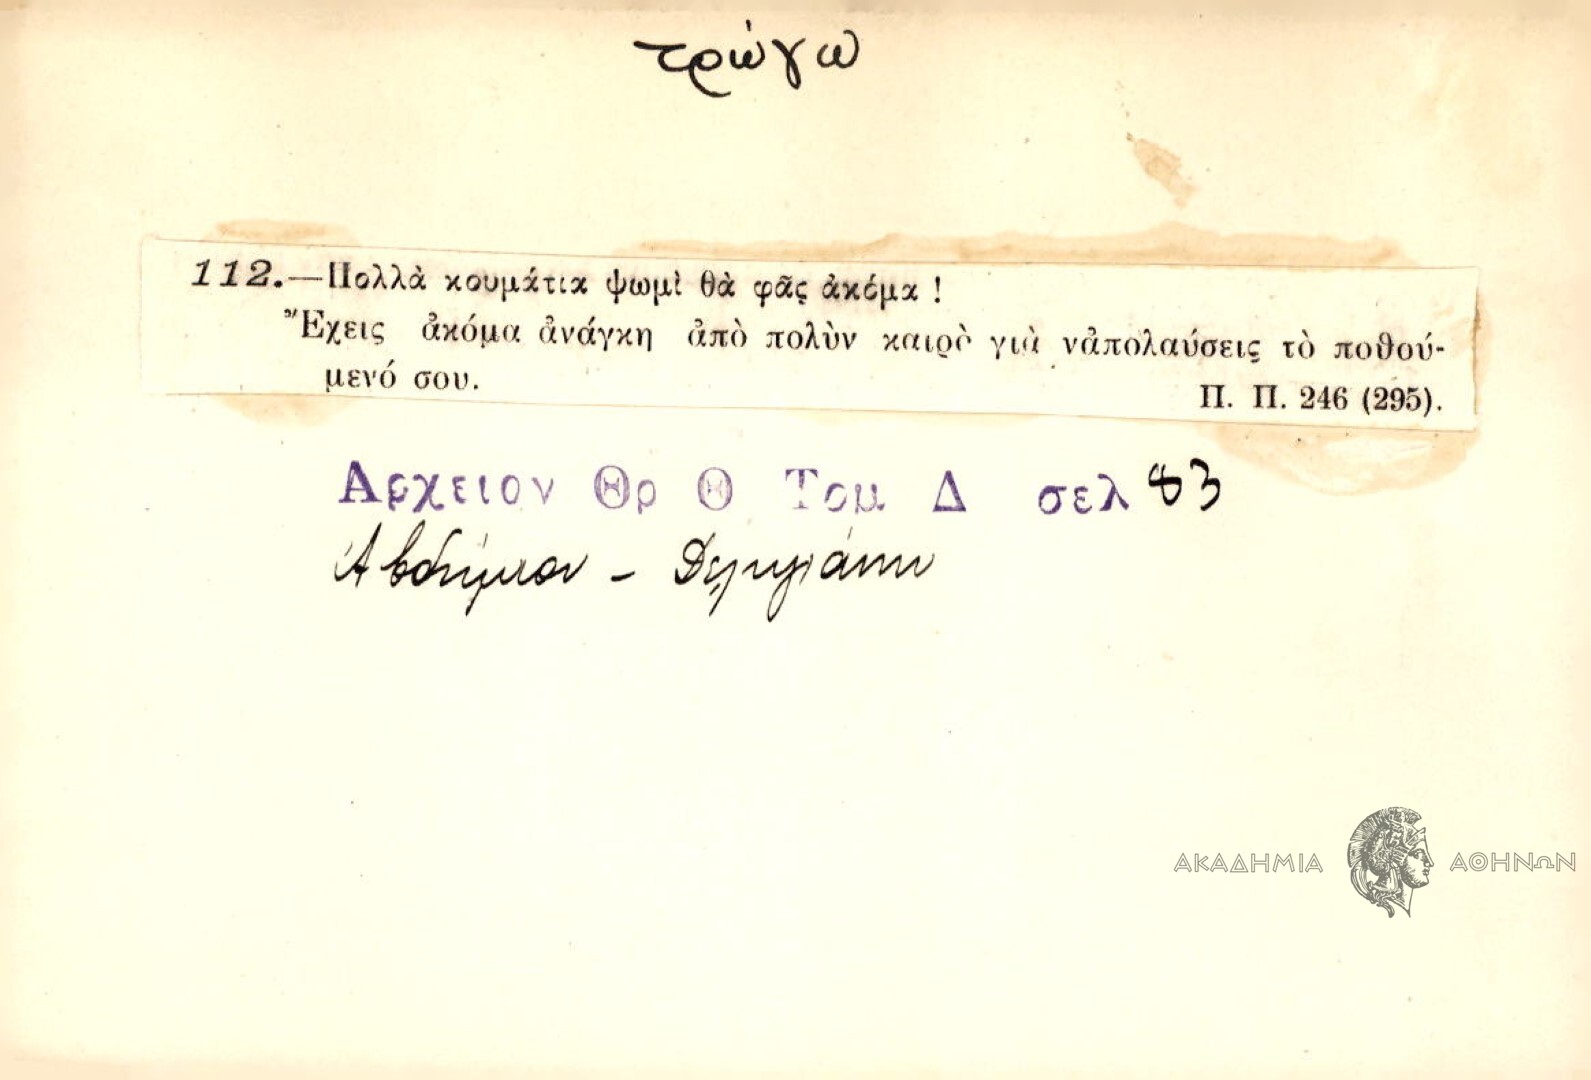 τρώγω
112.—Πολλὰ κουμάτια ψωμὶ θὰ φᾶς ἀκόμα !
Ἔχεις ἀκόμα ἀνάγκη ἀπὸ πολὺν καιρὸ γιὰ νἀπολαύσεις τὸ ποθού-
μενό σου. Π. Π. 246 (295).
Αρχειον Θρ Θ Τομ Δ σελ 83
Ἀβδήμιον - Δεληγιάννη
ΑΚΑΔΗΜΙΑ ΑΘΗΝΩΝ